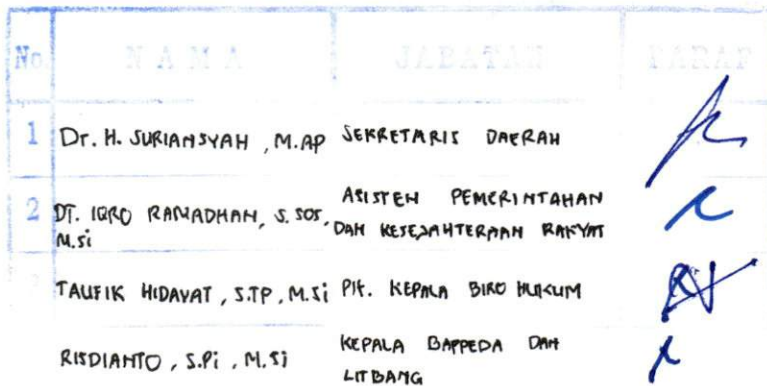 No. NAMA JABATAN PARAF
1 Dr. H. SURIANSYAH, M.AP SEKRETARIS DAERAH
2 DT. IQRO RAMADHAN, S.SOS, M.Si ASISTEN PEMERINTAHAN DAN KESEJAHTERAAN RAKYAT
3 TAUFIK HIDAYAT, S.TP, M.Si Plt. KEPALA BIRO HUKUM
RISDIANTO, S.Pi, M.Si KEPALA BAPPEDA DAN LITBANG